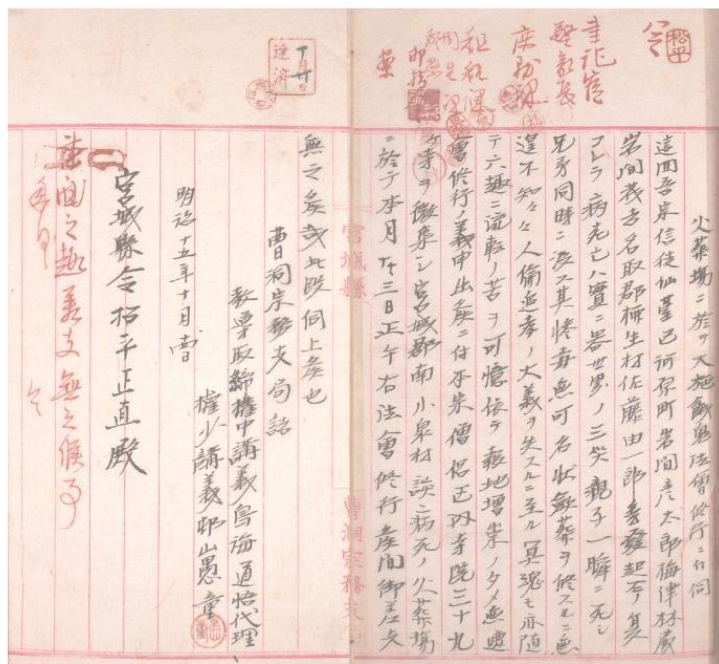 火葬場ニ於テ大施餓鬼法會修行ニ付伺
這回吾宗信徒仙臺河原町岩間彦太郎梅津林蔵
岩間茂吉名取郡生村佐藤由一郎等發起ニテ
コレラ病死亡ハ實ニ器世界ノ三災親子一瞬ニ死シ
兄弟同時ニ没ス其惨毒無可名状歛葬ヲ修スルニ無
遑不知々々人倫追孝ノ大義ヲ失スルニ至ル冥魂モ亦随
テ六趣ニ流転ノ苦ヲ可憶依テ義地増崇ノタメ無遮
會修行ノ義申出候ニ付本宗僧侶正副寺院三十九
ケ寺ヲ徴集シ宮城郡南小泉村該病死ノ火葬場
ニ於テ本月廿三日正午右法會修行候間御差支
無之候哉此段伺上候也
曹洞宗務支局詰
教導取締権中講義鳥海道怡代理
権少講義邨山愚童
明治十五年十月
宮城縣令松平正直殿
書面之趣差支無之候事
宮城縣
曹洞宗務支局
松平
租税課